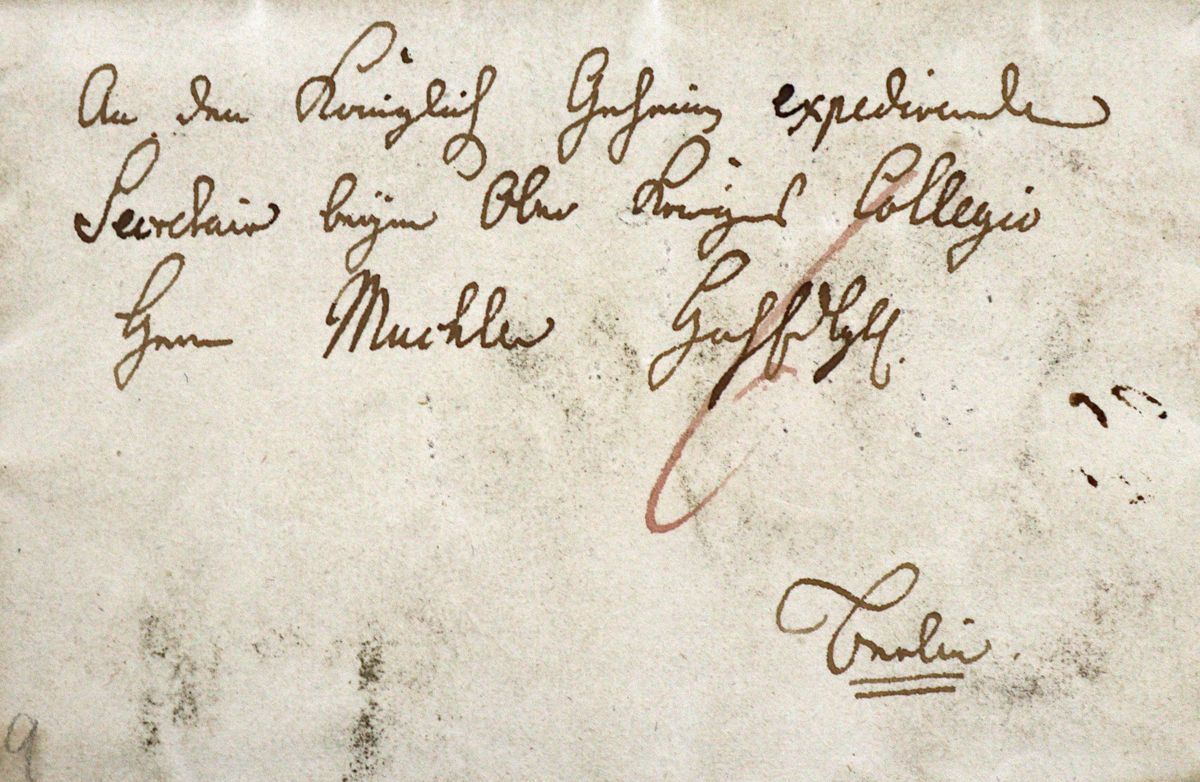 An den Königlich Geheim expedirenden
Secretair beym Ober Kriegs Collegio
Herrn Muchler
Berlin.
9